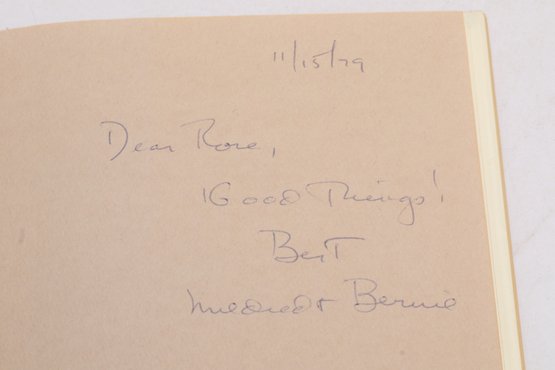 11/15/79
Dear Rose,
Good Things!
Best
Mildred & Bernie